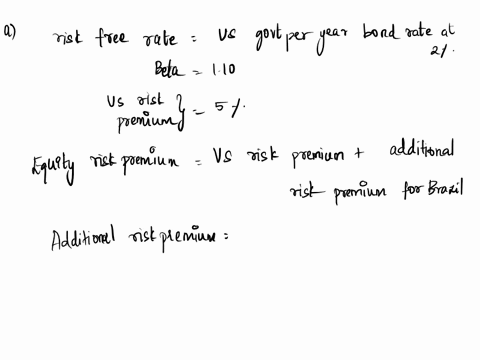 a) risk free rate = US govt per year bond rate at
2%.
Beta = 1.10
US risk
premium } = 5%.
Equity risk premium = US risk premium + additional
risk premium for Brazil
Additional risk premium =